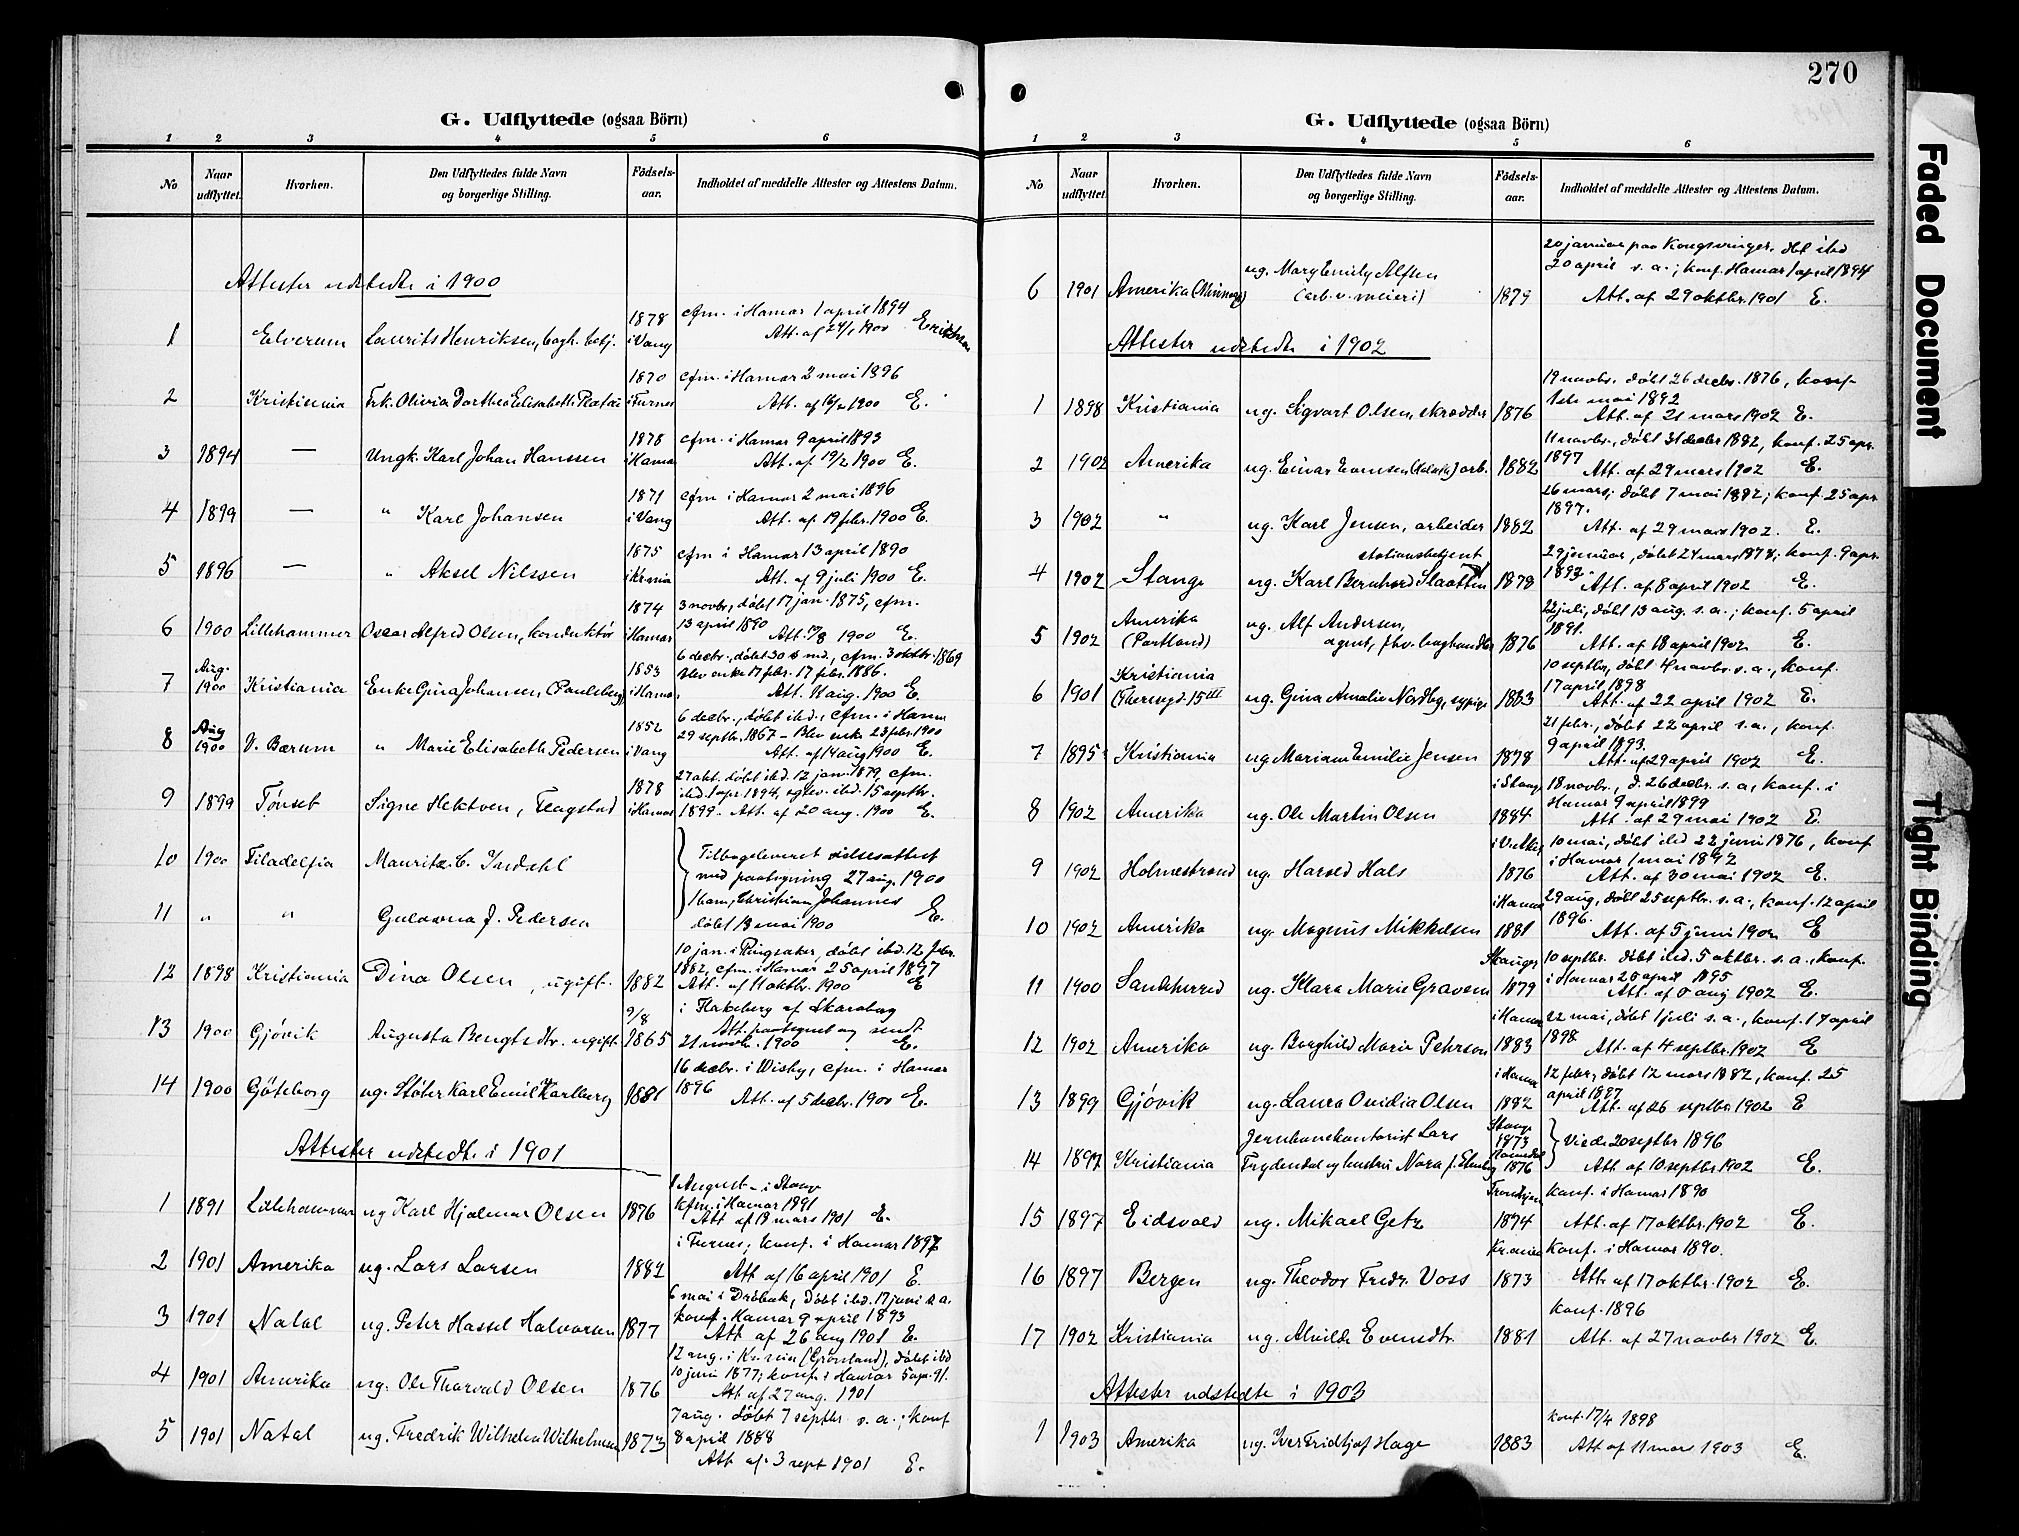 270
G. Udflyttede (ogsaa Börn)
1 2 3 4 5 6
No
Naar udflyttet.
Hvorhen.
Den Udflyttedes fulde Navn og borgerlige Stilling.
Födsels-aar.
Indholdet af meddelte Attester og Attestens Datum.
Attester udstedte i 1900
1 Elverum Laurits Henriksen, 1878 i Vang cfm. i Hamar 1 april 1894
Att. af 24/1 1900
2 Kristiania Frk. Olivia Dorthea Elisabeth 1870 i Furnes cfm. i Hamar 2 mai 1896
Att. af 1900 E.
3 1894 — Ungk. Karl Johan Hanssen 1878 i Hamar cfm. i Hamar 9 april 1893
Att. af 19/2 1900 E.
4 1899 — " Karl Johansen 1871 i Vang cfm i Hamar 2 mai 1896
Att. af 19 febr. 1900 E.
5 1896 — " Aksel Nilssen 1875 i Krania cfm i Hamar 13 april 1890
Att. af 9 juli 1900 E.
6 1900 Lillehammer Oscar Alfred Olsen, konduktör 1874 i Hamar 3 novbr, döbt 17 jan. 1875, cfm.
13 april 1890
Att. 1900 E.
7 Aug. 1900 Kristiania Enke Gina Johansen (Paulsberg) 1853 i Hamar 6 decbr., döbt 30 s. md., cfm. 3 oktbr. 1869
Blev enke 17 febr. 17 febr. 1886.
Att. 11 aug. 1900 E.
8 Aug 1900 V. Bærum " Marie Elisabeth Pedersen 1852 i Vang 6 decbr., döbt ibd., cfm. i Hamar
29 septbr. 1867 - Blev enke 23 febr. 1900
Att. af 14 aug 1900 E.
9 1899 Tönset Signe Hektoen, Flagstad 1878 i Hamar 27 okt. döbt ibd. 12 jan. 1879, cfm.
ibd. 1 apr 1894, ibd. 15 septbr.
1899. Att. af 20 aug. 1900 E.
10 1900 Filadelfia Mauritz C. Indahl Tilbageleveret vielsesattest
med paategning 27 aug. 1900
11 " " Guldorna J. Pedersen 1 barn, Christian Johannes E.
döbt 13 mai 1900
12 1898 Kristiania Dina Olsen, ugift. 1882 10 jan. i Ringsaker, döbt ibd. 12 febr.
1882, cfm. i Hamar 25 april 1897
Att. af 11 oktbr. 1900 E
13 1900 Gjövik Augusta Bengtsdtr. ugift. 9/8 1865 i Hakeberg af Skaraborg
Att. paategnet og sendt
21 novbr. 1900 E.
14 1900 Göteborg ug. Stöter Karl Emil Karlberg 1881 16 decbr. i Wisby, cfm. i Hamar
1896
Att. af 5 decbr. 1900 E.
Attester udstedte i 1901
1 1891 Lillehammer ug Karl Hjalmar Olsen 1876 1 August - i Stange
kfm. i Hamar 1891
Att af 19 mars 1901 E.
2 1901 Amerika ug. Lars Larsen 1882 i Furnes, konf. i Hamar 1897
Att af 16 april 1901 E.
3 1901 Natal ug. Peter Hassel Halvorsen 1877 6 mai i Dröbak, döbt ibd. 17 juni s.a.
konf. Hamar 9 april 1893
Att af 26 aug 1901 E.
4 1901 Amerika ug. Ole Thorvald Olsen 1876 12 aug. i Kr.ania (Grönland), döbt ibd
10 juni 1877; konf. i Hamar 5 apr. 91.
Att af 27 aug. 1901
5 1901 Natal ug. Fredrik Wilhelm Wilhelmsen 1873 7 aug. döbt 7 septbr s. a.; konf
8 april 1888
Att af 3 sept 1901 E.
G. Udflyttede (ogsaa Börn)
1 2 3 4 5 6
No
Naar udflyttet.
Hvorhen.
Den Udflyttedes fulde Navn og borgerlige Stilling.
Födsels-aar.
Indholdet af meddelte Attester og Attestens Datum.
6 1901 Amerika ug. Mary Emily Alfsen
(arb. v. meieri) 1879 20 januar paa Kongsvinger. döbt ibd
20 april s. a.; konf. Hamar 1 april 1894
Att. af 29 oktbr. 1901 E.
Attester udstedte i 1902
1 1898 Kristiania ug. Sigvart Olsen, skrædder 1876 19 novbr. döbt 26 decbr. 1876, konf.
1ste mai 1892
Att. af 21 mars 1902 E.
2 1902 Amerika ug. Einar Evensen arb. 1882 11 novbr., döbt 31 decbr 1882, konf. 25 apr.
1897
Att. af 29 mars 1902 E.
3 1902 " ug. Karl Jensen, arbeider 1882 26 mars; döbt 7 mai 1882; konf. 25 apr.
1897.
Att. af 29 mars 1902. E.
4 1902 Stange ug. Karl Bernhard Slaatten stationsbetjent 1878 29 januar, döbt 24 mars 1878; konf. 9 apr.
1893.
Att. af 8 april 1902 E.
5 1902 Amerika (Portland) ug. Alf Andersen,
agent, fhv. boghandler 1876 22 juli, döbt 13 aug. s. a.; konf. 5 april
1891.
Att. af 18 april 1902 E.
6 1901 Kristiania (Theresgd. 15 III ug. Gina Amalie Nordby, sypige 1883 10 septbr, döbt 4 novbr. s. a., konf.
17 april 1898
Att. af 22 april 1902 E.
7 1895 Kristiania ug Mariane Emilie Jensen 1878 21 febr., döbt 22 april s. a., konf.
9 april 1893.
Att. af 29 april 1902 E.
8 1902 Amerika ug. Ole Martin Olsen i Stange 1884 18 novbr., d. 26 decbr. s. a, konf. i
Hamar 9 april 1899
Att. af 29 mai 1902 E.
9 1902 Holmestrand ug. Harald Hals i V. Aker 1876 10 mai, döbt ibd 22 juni 1876, konf
i Hamar 1 mai 1892
Att. af 30 mai 1902 E.
10 1902 Amerika ug. Magnus Mikkelsen i Hamar 1881 29 aug, döbt 25 septbr. s. a., konf. 12 april
1896.
Att. af 5 juni 1902 E
11 1900 Sandherred ug. Klara Marie Gravem 1879 10 septbr. döbt ibd. 5 oktbr. s. a., konf.
i Hamar april 1895
Att. af aug 1902 E.
12 1902 Amerika ug. Borghild Marie Pehrson i Hamar 1883 22 mai, döbt 1 juli s. a., konf. 17 april
1898
Att. af 4 septbr. 1902 E
13 1899 Gjövik ug. Laura Ovidia Olsen i Hamar 1882 12 febr, döbt 12 mars 1882, konf. 25
april 1897
Att. af 26 septbr. 1902 E
14 1897 Kristiania Jernbanekontorist Lars
Frydendal og hustru Nora f. Stange 1873 1876 Viede 20 septbr 1896
Att. af 10 septbr 1902 E.
15 1897 Eidsvold ug. Mikael Getz Trondhjem 1874 konf. i Hamar 1890
Att. af 17 oktbr. 1902 E.
16 1897 Bergen ug. Theodor Fredr. Voss Kr.ania 1873 konf. i Hamar 1890.
Att. af 17 oktbr. 1902 E.
17 1902 Kristiania ug. Alvilde Evensdtr. 1881 konf. 1896
Att. af 27 novbr 1902 E.
Attester udstedte i 1903
1 1903 Amerika ug. Iver Fridtjof Hage 1883 konf. 17/4 1898
Att af 11 mars 1903 E.
Faded Document
Tight Binding